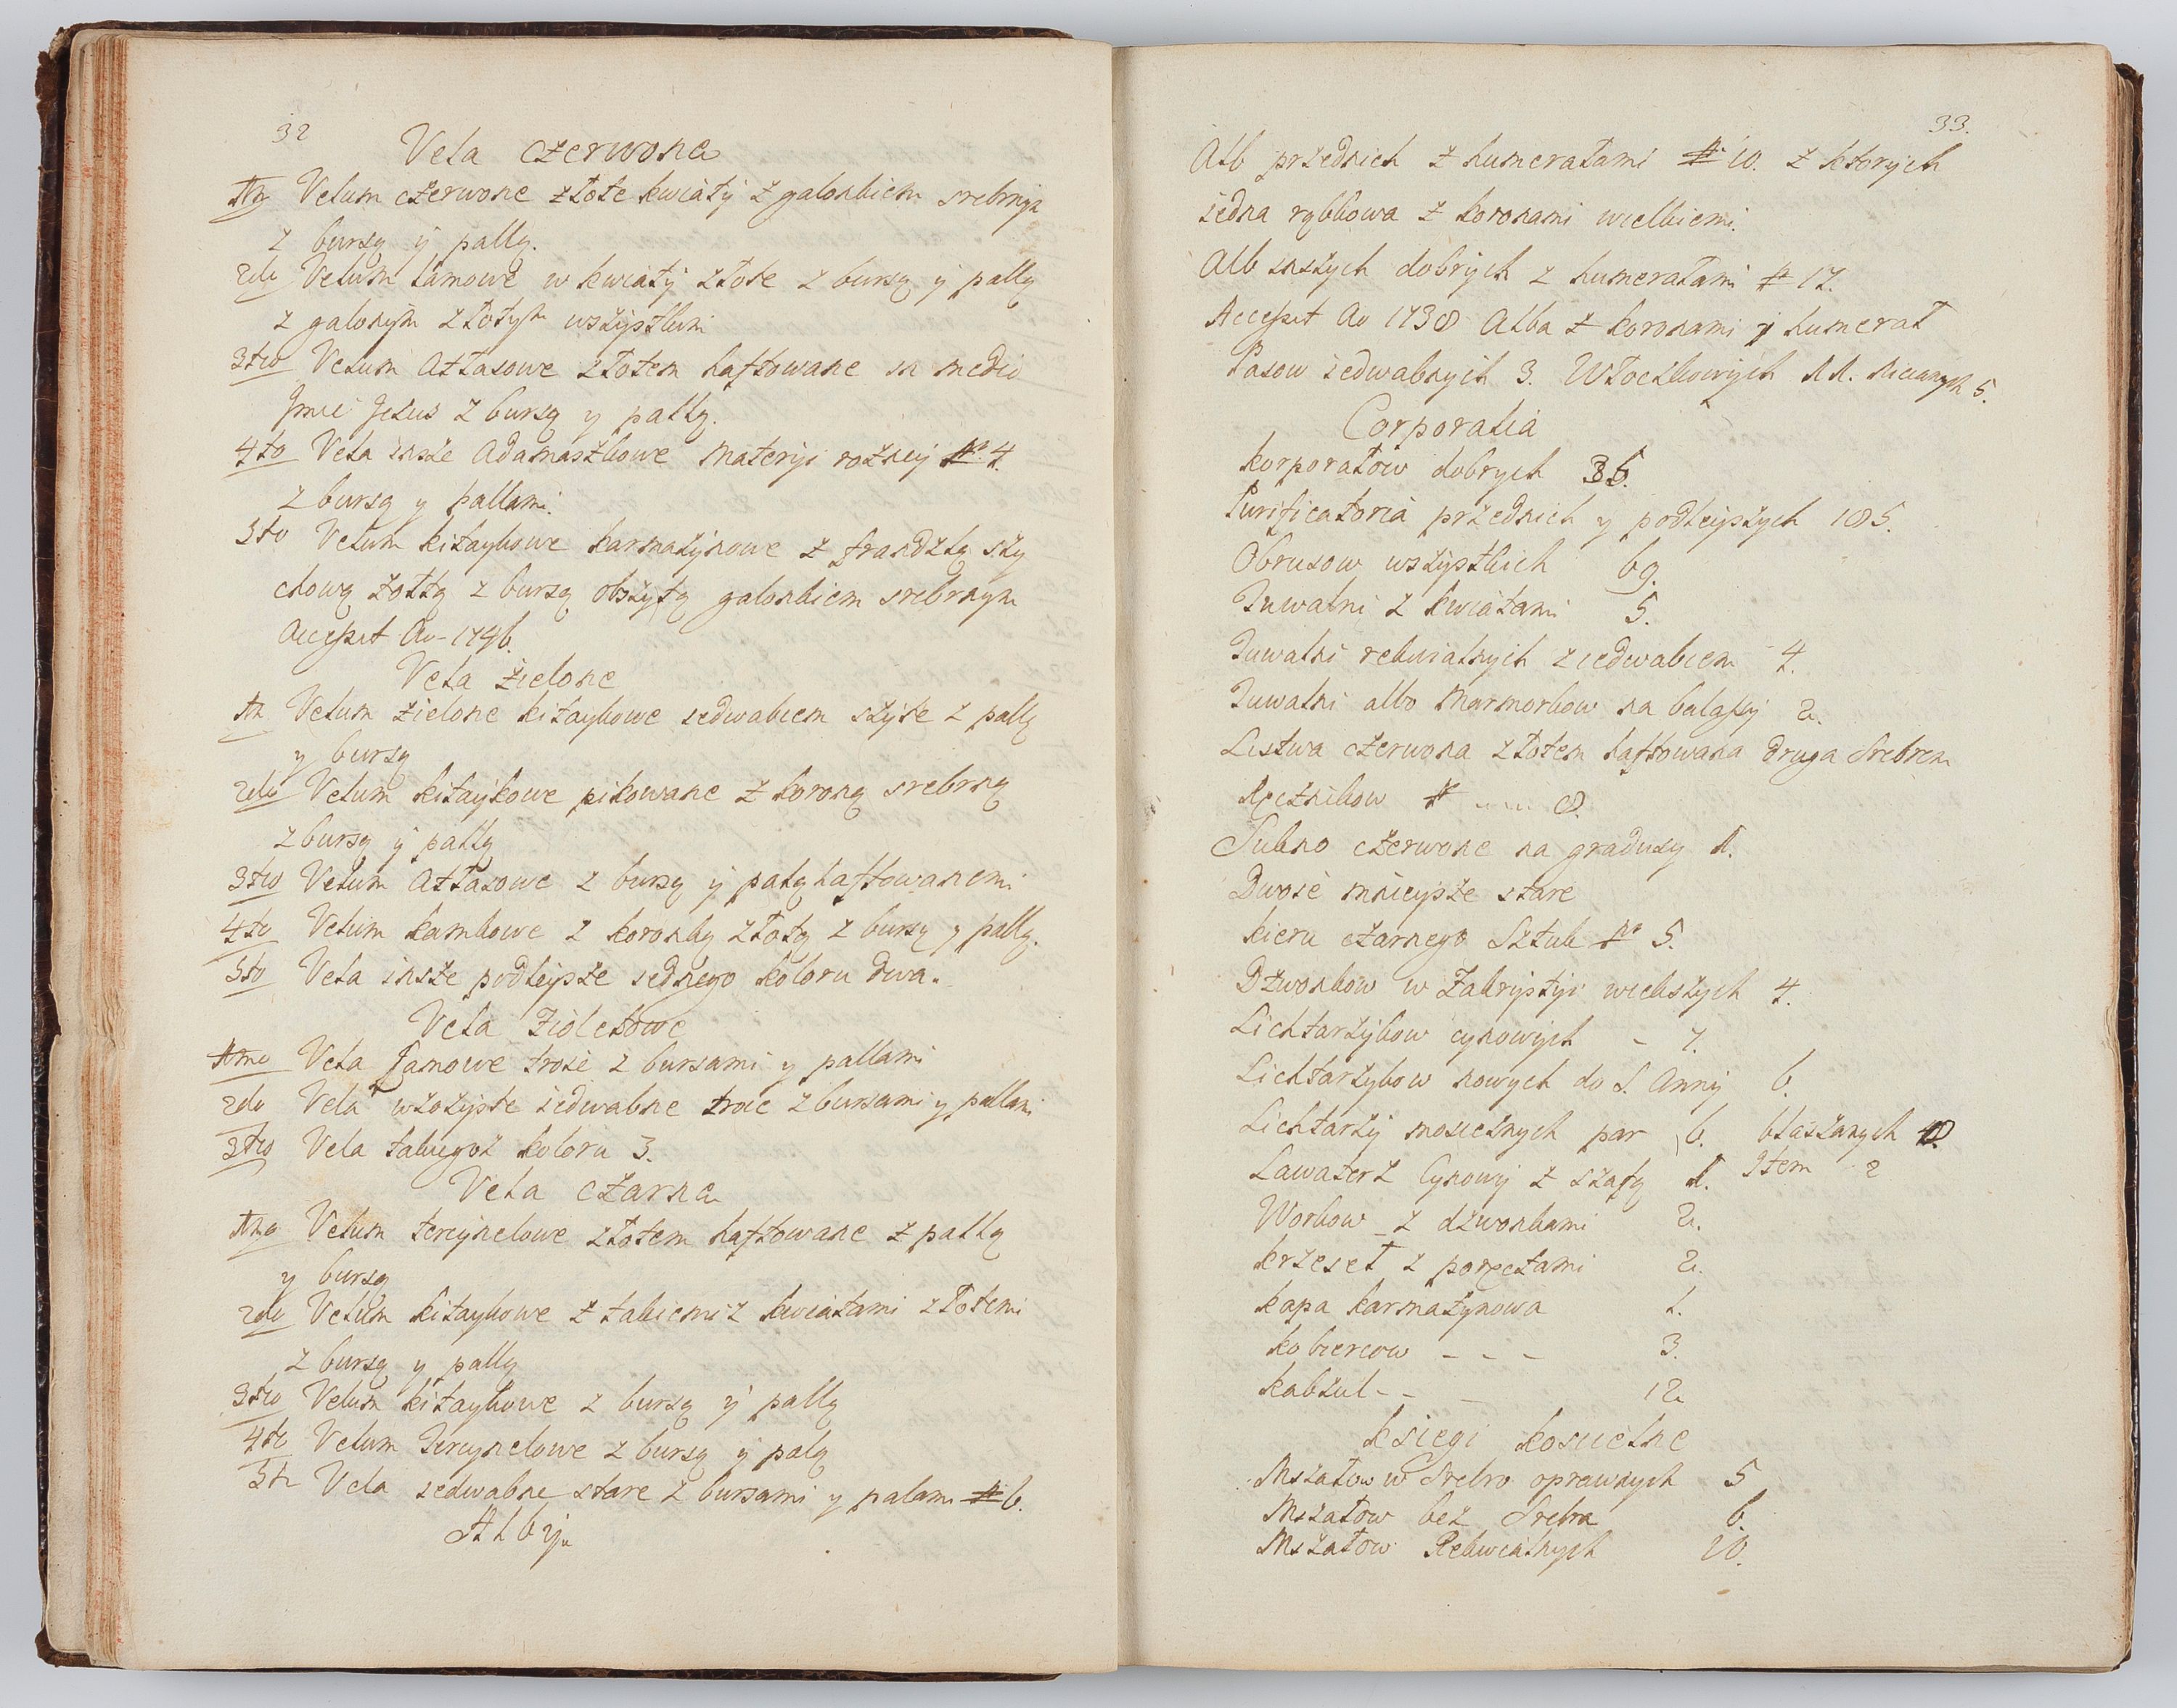 32
Vela czerwona
1mo Velum czerwone złote kwiaty z galonkiem srebrnym
z bursą y pallą.
2do Velum lamowe w kwiaty złote z bursą y pallą
z galonym złotym wszystkim
3tio Velum Atłasowe złotem haftowane in medio
Jmie Jezus z bursą y pallą.
4to Vela insze Adamaszkowe materyi rożney No 4.
z bursą y pallami.
5to Velum kitaykowe karmazynowe z frandzlą szy
chową żołtą z bursą obszytą galonkiem srebrnym
Accessit Ao 1746.
Vela zielone
1mo Velum zielone kitaykowe iedwabiem szyte z pallą
y bursą
2do Velum kitaykowe pikowane z koroną srebrną
z bursą y pallą
3tio Velum Atłasowe z bursą y palą haftowanemi
4to Velum kamkowe z koronką złotą z bursą y pallą.
5to Vela insze podleysze iednego koloru dwa.
Vela Fioletowe
1mo Vela Lamowe troie z bursami y pallami
2do Vela wzorzyste iedwabne troie z bursami y pallami
3tio Vela takiegoż koloru 3.
Vela czarna
1mo Velum tercynelowe złotem haftowane z pallą
y bursą
2do Velum kitaykowe z kwiatami złotemi
z bursą y pallą
3tio Velum kitaykowe z bursą y pallą
4to Velum Tercynelowe z bursą y palą
5to Vela iedwabne stare z bursami y palami No 6.
Alby
33.
Alb przednich z humerałami No 10. z ktorych
iedna rąbkowa z koronami wielkiemi.
Alb inszych dobrych z humerałami No 17.
Accessit Ao 1738 Alba z koronami y humerał
Pasow iedwabnych 3. Włoczkowych 11. nicianych 5.
Corporalia
Korporałow dobrych 36.
Purificatoria przednich y podleyszych 185.
Obrusow wszystkich 69.
Tuwalni z kwiatami 5.
Tuwalni rekwialnych z iedwabiem 4.
Tuwalni albo Marmorkow na balaski 2.
Listwa czerwona złotem haftowana druga srebrem
Ręcznikow No 8.
Sukno czerwone na gradusy 1.
Dwoie mnieysze stare
Kieru czarnego Sztuk No 5.
Dzwonkow w Zakrystyi wiekszych 4.
Lichtarzykow cynowych - 7.
Lichtarzykow nowych do S. Anny 6.
Lichtarzy mosieżnych par 6. blaszanych 10
Lawaterz Cynowy z szafą 1. Item 2
Workow z dzwonkami 2.
Krzeseł z poręczami 2.
Kapa karmazynowa 1.
Kobiercow - - - 3.
Kabzul - - 12
Księgi Koscielne
Mszałow w Srebro oprawnych 5
Mszałow bez Srebra 6.
Mszałow Rekwialnych 10.